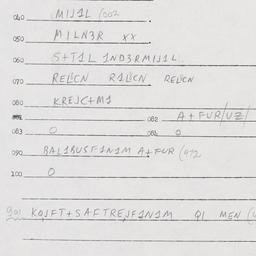 040 MIJ1L 1002
050 MILN3R XX
060 S+T1L 1ND3RMIJ1L
070 RELICN R1LICN RELICN
080 KREJC+M1
082 A+FUR/UZ/
083 0 084 0
090 BAL1BUSF1N1M A+FUR
100 0
901 KOJFT+SAFTREJF1N1M QI MEN